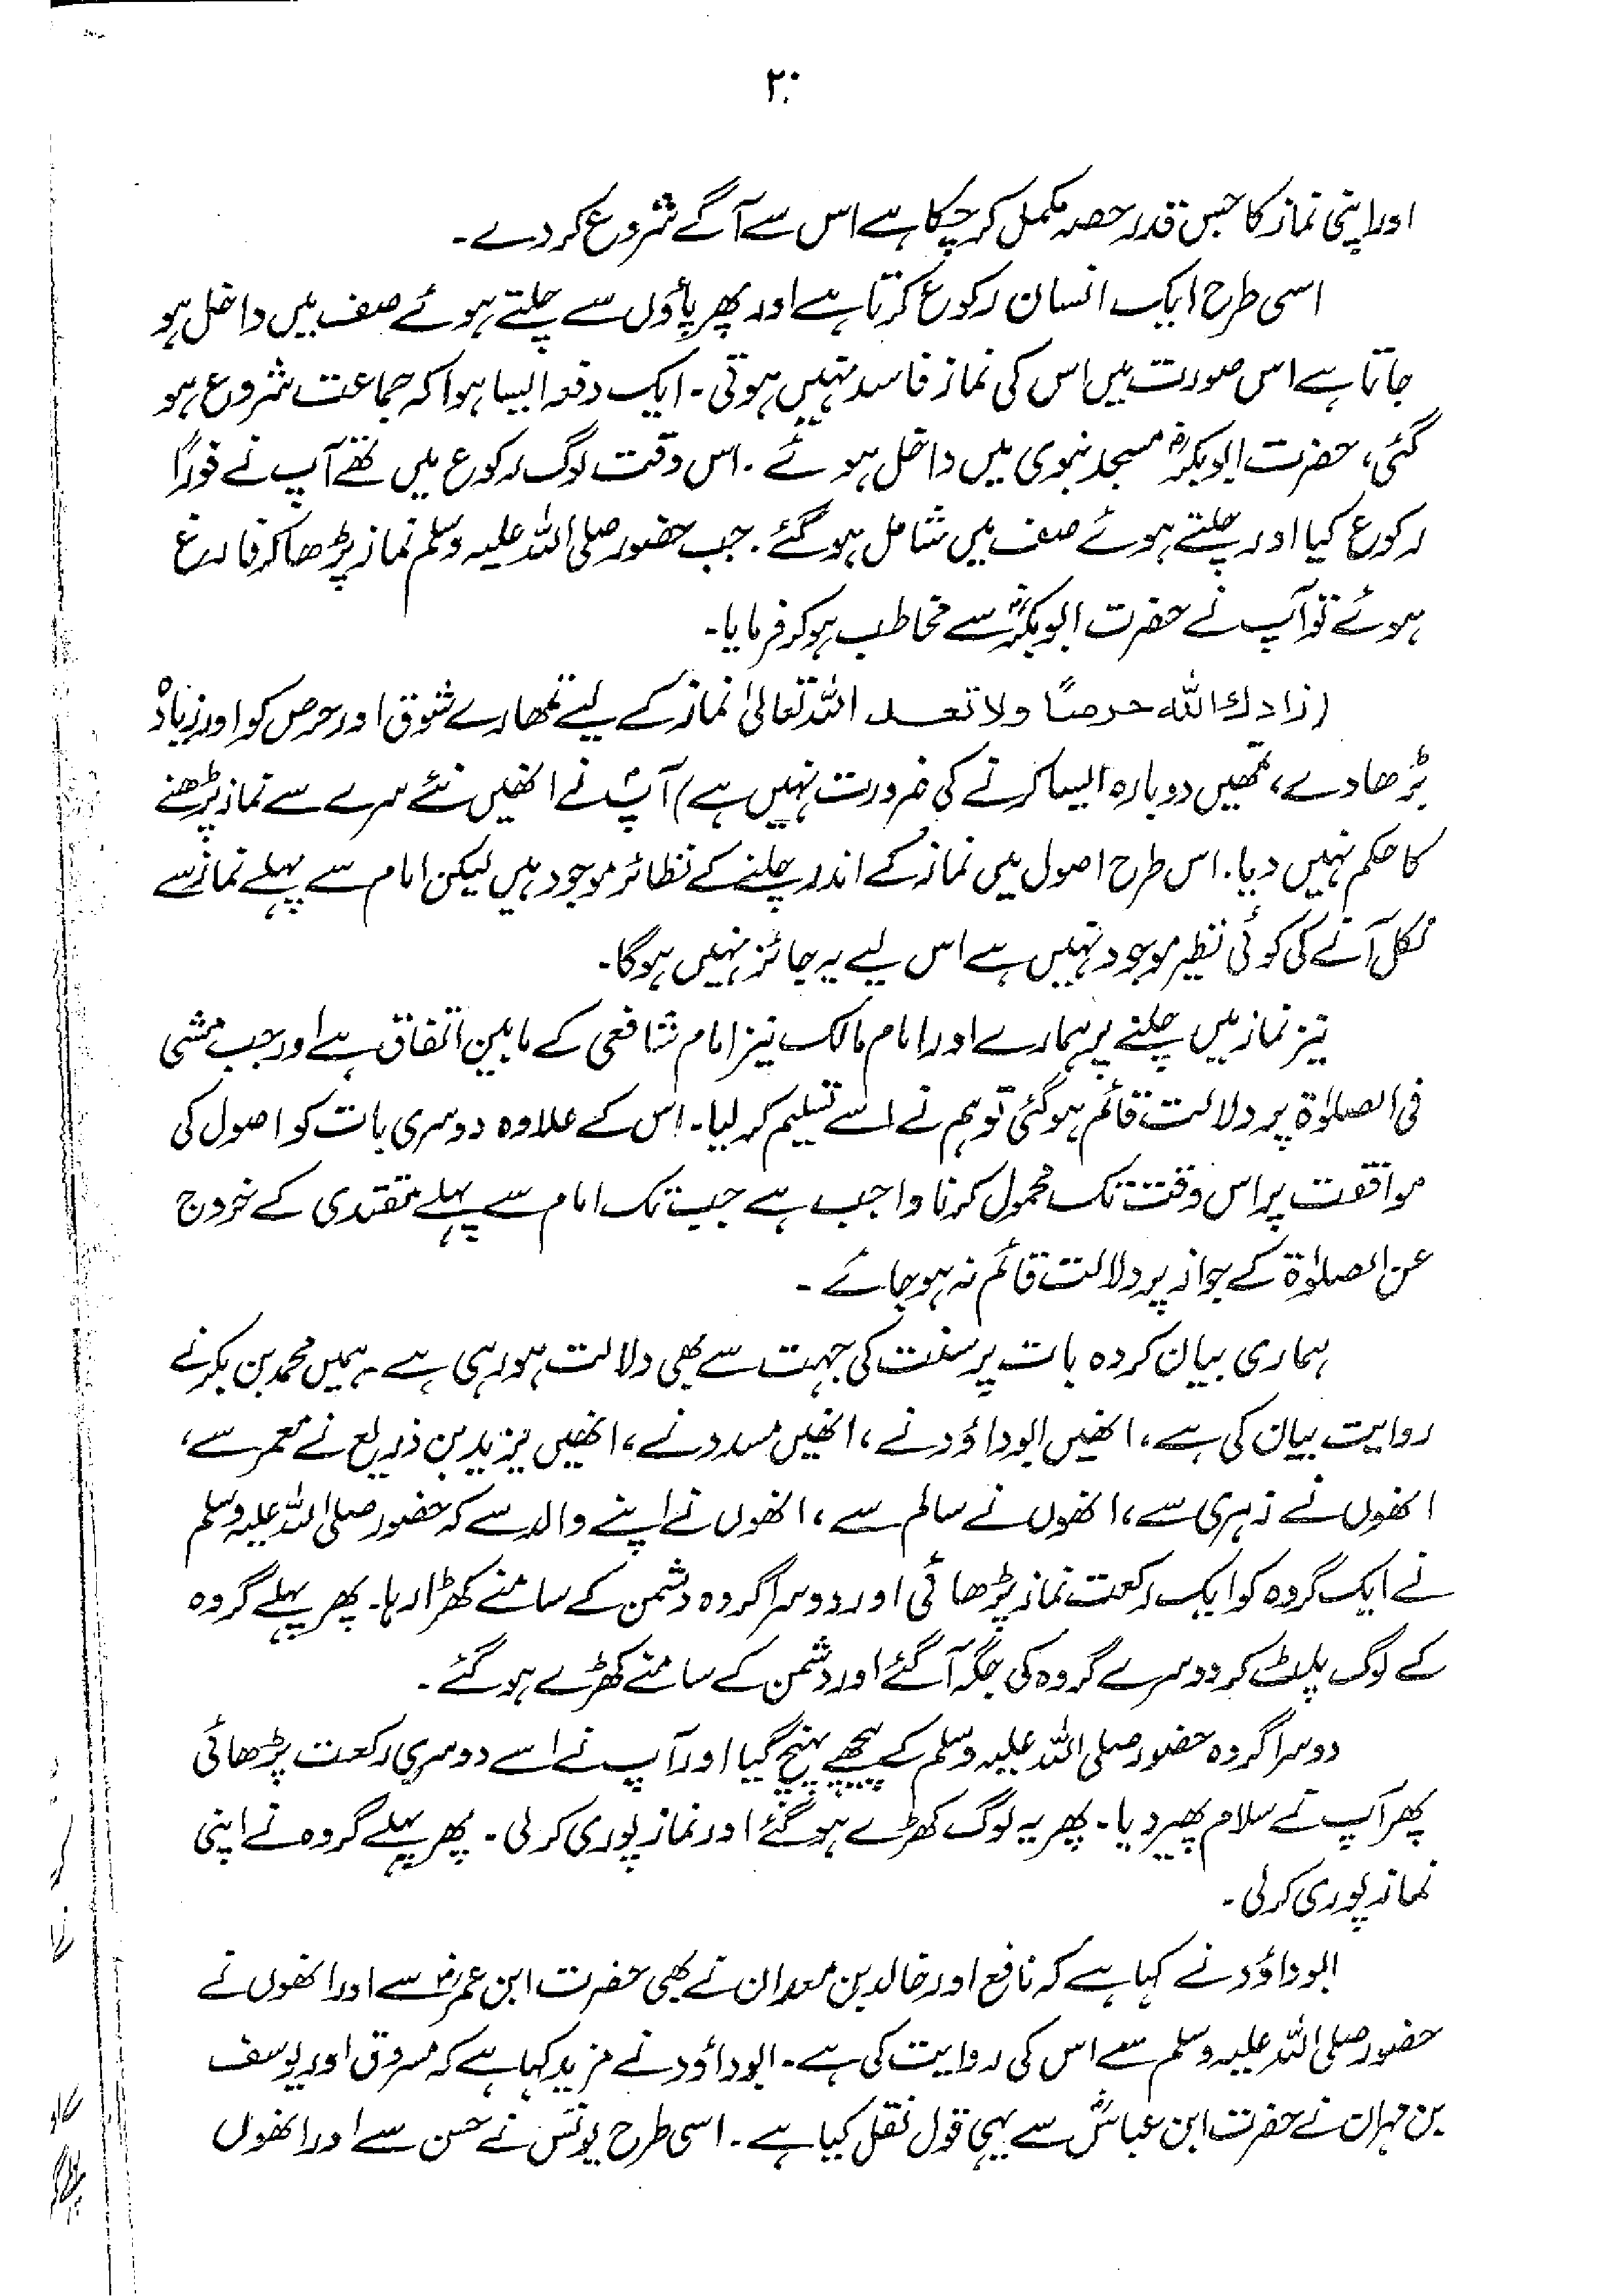 ۲۰
اور اپنی نماز کا جس قدر حصہ مکمل کر چکا ہے اس سے آگے شروع کر دے۔
اسی طرح ایک انسان رکوع کرتا ہے اور پھر پاؤں سے چلتے ہوئے صف میں داخل ہو
جاتا ہے اس صورت میں اس کی نماز فاسد نہیں ہوتی۔ ایک دفعہ ایسا ہوا کہ جماعت شروع ہو
گئی، حضرت ابوبکرؓ مسجد نبوی میں داخل ہوئے۔ اس وقت لوگ رکوع میں تھے آپ نے فوراً
رکوع کیا اور چلتے ہوئے صف میں شامل ہو گئے۔ جب حضور صلی اللہ علیہ وسلم نماز پڑھا کر فارغ
ہوئے تو آپ نے حضرت ابوبکرؓ سے مخاطب ہو کر فرمایا۔
(زادك الله حرصًا ولا تعد اللہ تعالیٰ نماز کے لیے تمھارے شوق اور حرص کو اور زیادہ
بڑھا دے، تمھیں دوبارہ ایسا کرنے کی ضرورت نہیں ہے) آپؐ نے انھیں نئے سرے سے نماز پڑھنے
کا حکم نہیں دیا۔ اس طرح اصول میں نماز کے اندر چلنے کے نظائر موجود ہیں لیکن امام سے پہلے نماز سے
نکل آنے کی کوئی نظیر موجود نہیں ہے اس لیے یہ جائز نہیں ہوگا۔
نیز نماز میں چلنے پر ہمارے اور امام مالک نیز امام شافعی کے مابین اتفاق ہے اور جب مشی
فی الصلوٰۃ پر دلالت قائم ہو گئی تو ہم نے اسے تسلیم کر لیا۔ اس کے علاوہ دوسری بات کو اصول کی
موافقت پر اس وقت تک محمول کرنا واجب ہے جب تک امام سے پہلے مقتدی کے خروج
عن الصلوٰۃ کے جواز پر دلالت قائم نہ ہو جائے۔
ہماری بیان کردہ بات پر سنت کی جہت سے بھی دلالت ہو رہی ہے۔ ہمیں محمد بن بکر نے
روایت بیان کی ہے، انھیں ابوداؤد نے، انھیں مسدد نے، انھیں یزید بن زریع نے معمر سے،
انھوں نے زہری سے، انھوں نے سالم سے، انھوں نے اپنے والد سے کہ حضور صلی اللہ علیہ وسلم
نے ایک گروہ کو ایک رکعت نماز پڑھائی اور دوسرا گروہ دشمن کے سامنے کھڑا رہا۔ پھر پہلے گروہ
کے لوگ پلٹ کر دوسرے گروہ کی جگہ آ گئے اور دشمن کے سامنے کھڑے ہو گئے۔
دوسرا گروہ حضور صلی اللہ علیہ وسلم کے پیچھے پہنچ گیا اور آپ نے اسے دوسری رکعت پڑھائی
پھر آپ نے سلام پھیر دیا۔ پھر یہ لوگ کھڑے ہو گئے اور نماز پوری کر لی۔ پھر پہلے گروہ نے اپنی
نماز پوری کر لی۔
ابوداؤد نے کہا ہے کہ نافع اور خالد بن معدان نے بھی حضرت ابن عمرؓ سے اور انھوں نے
حضور صلی اللہ علیہ وسلم سے اس کی روایت کی ہے۔ ابوداؤد نے مزید کہا ہے کہ مسروق اور یوسف
بن مہران نے حضرت ابن عباسؓ سے یہی قول نقل کیا ہے۔ اسی طرح یونس نے حسن سے اور انھوں